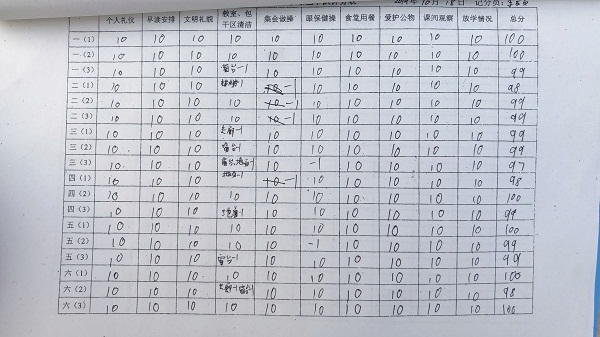 2019年10月18日 记分员:
个人礼仪 早读安排 文明礼貌 教室、包干区清洁 集会做操 眼保健操 食堂用餐 爱护公物 课间观察 放学情况 总分
一(1) 10 10 10 10 10 10 10 10 10 10 100
一(2) 10 10 10 10 10 10 10 10 10 10 100
一(3) 10 10 10 窗台-1 10 10 10 10 10 10 99
二(1) 10 10 10 -1 10 -1 10 10 10 10 10 98
二(2) 10 10 10 10 10 -1 10 10 10 10 10 99
二(3) 10 10 10 10 10 -1 10 10 10 10 10 99
三(1) 10 10 10 走廊-1 10 10 10 10 10 10 99
三(2) 10 10 10 窗台-1 10 10 10 10 10 10 99
三(3) 10 10 10 窗台、地面-1 10 -1 10 10 10 10 97
四(1) 10 10 10 地面-1 10 -1 10 10 10 10 10 98
四(2) 10 10 10 10 10 10 10 10 10 10 100
四(3) 10 10 10 -1 10 10 10 10 10 10 99
五(1) 10 10 10 10 10 10 10 10 10 10 100
五(2) 10 10 10 10 10 -1 10 10 10 10 99
五(3) 10 10 10 窗台-1 10 10 10 10 10 10 99
六(1) 10 10 10 10 10 10 10 10 10 10 100
六(2) 10 10 10 走廊-1 窗台-1 10 10 10 10 10 10 98
六(3) 10 10 10 10 10 10 10 10 10 10 100